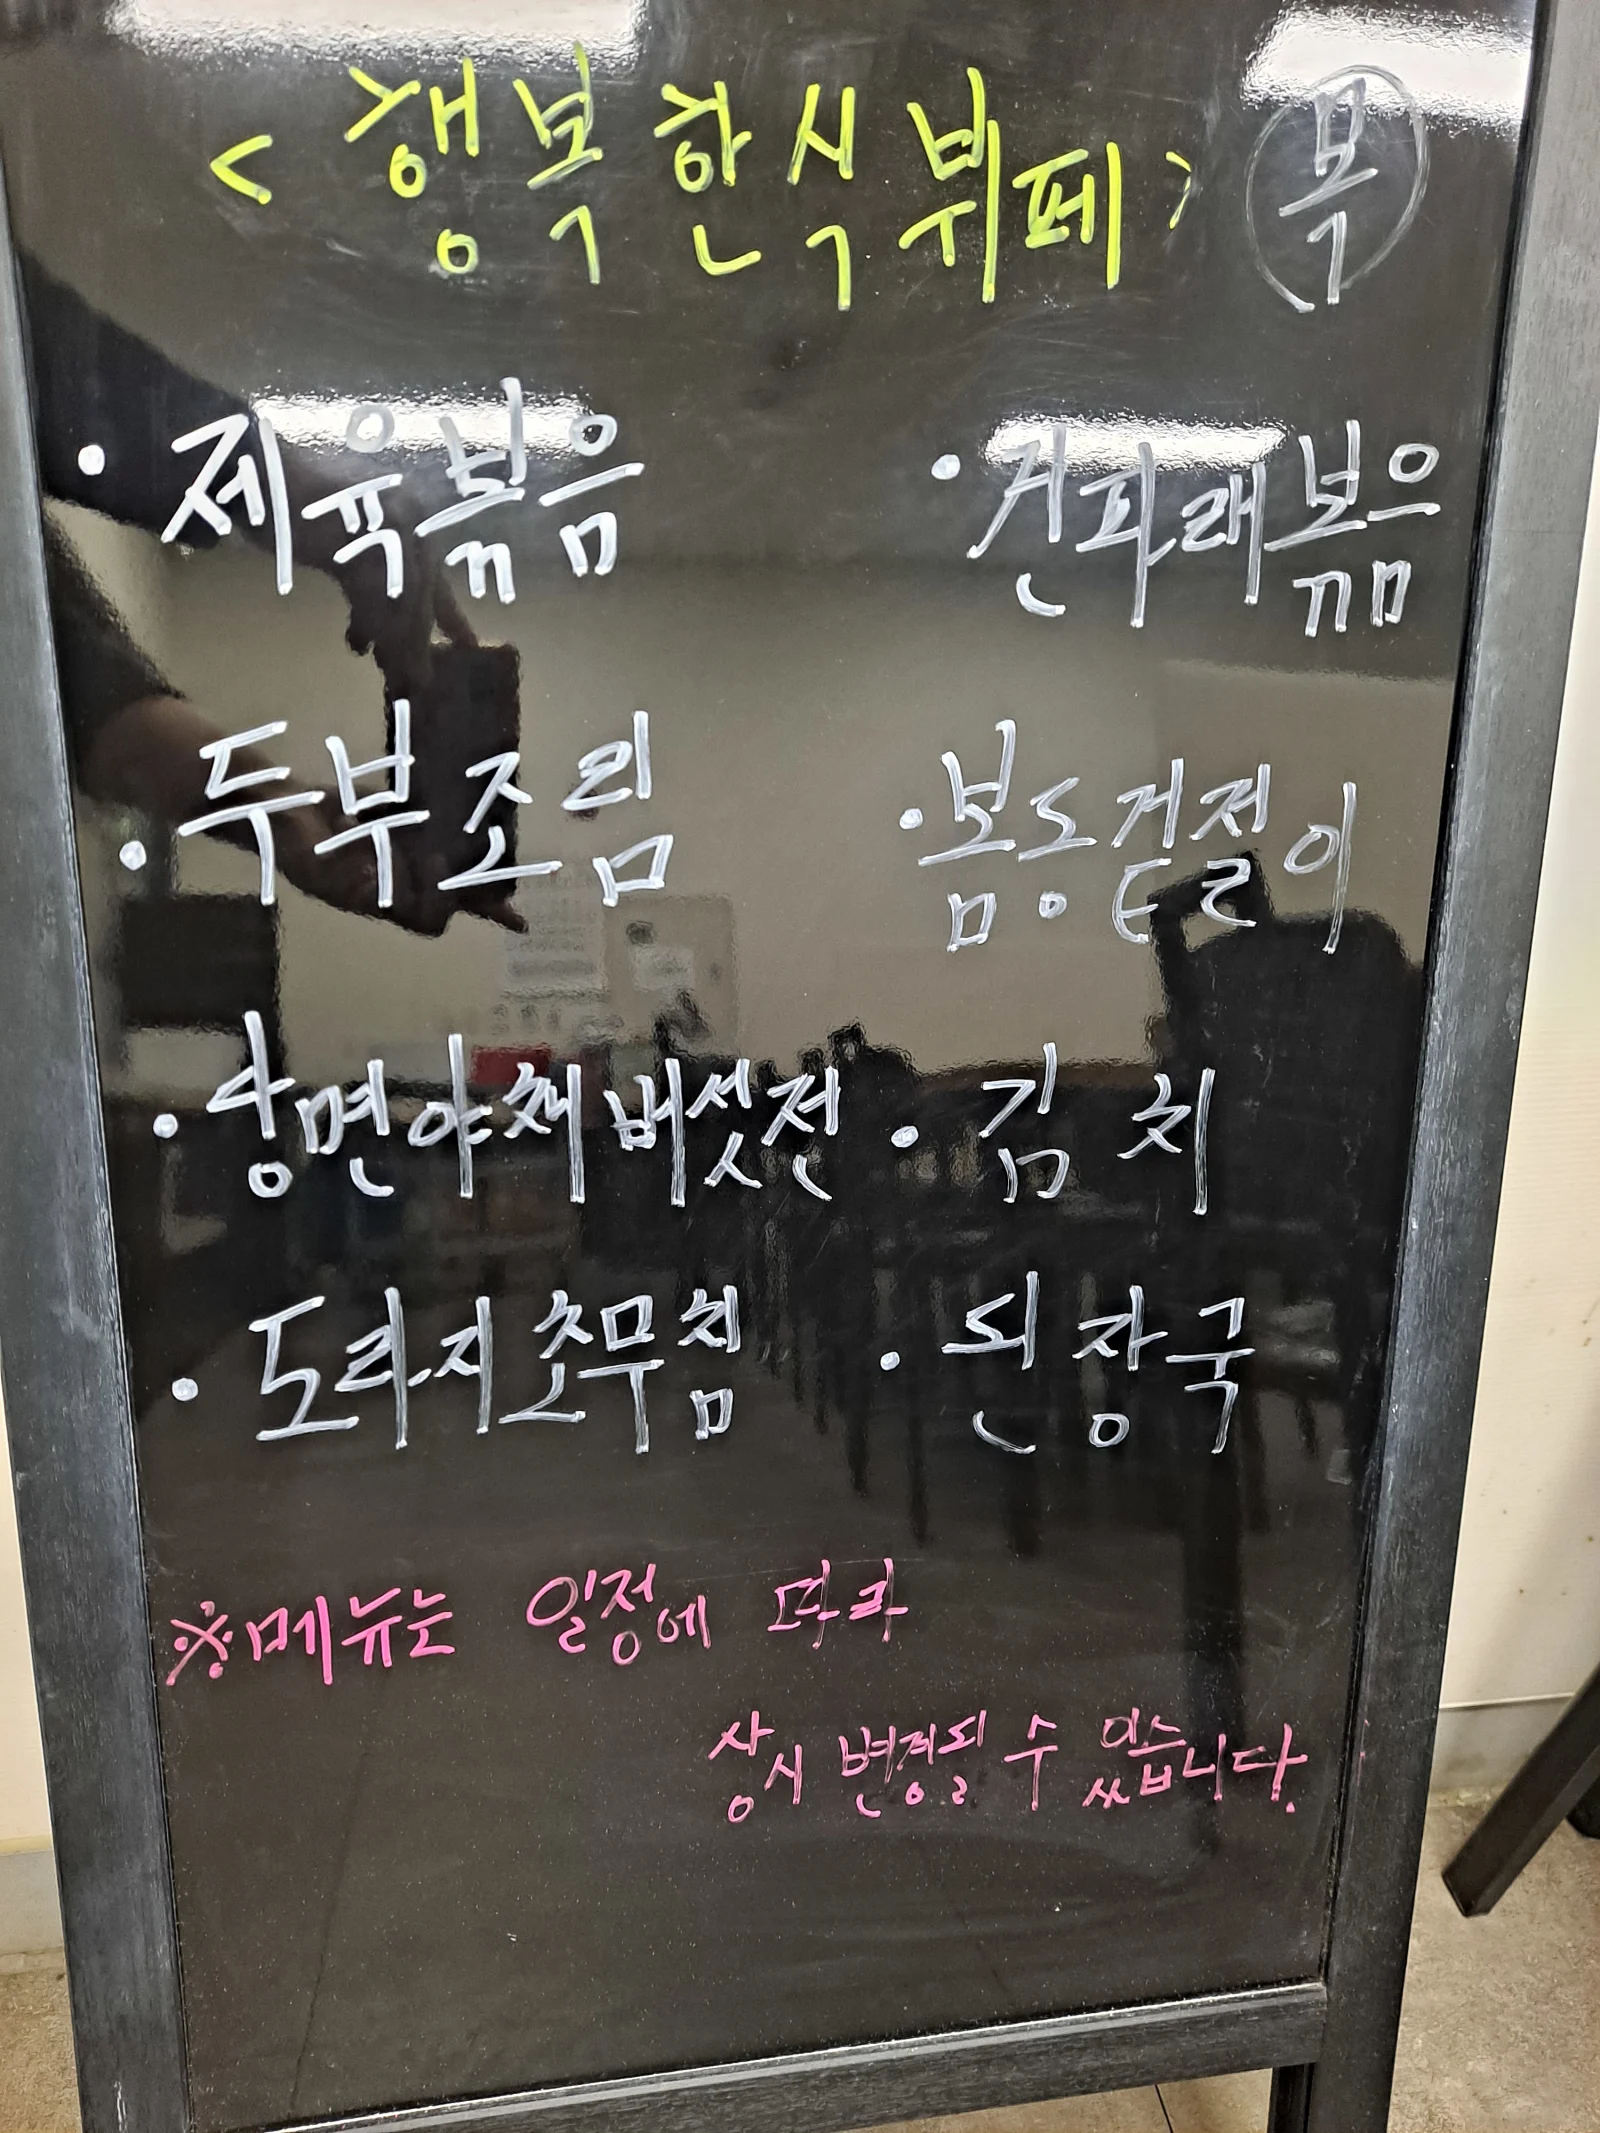 < 행복한식뷔페 > 목
· 제육볶음
· 건파래볶음
· 두부조림
· 봄동겉절이
· 당면야채버섯전
· 김치
· 도라지초무침
· 된장국
※메뉴는 일정에 따라
상시 변경될 수 있습니다.